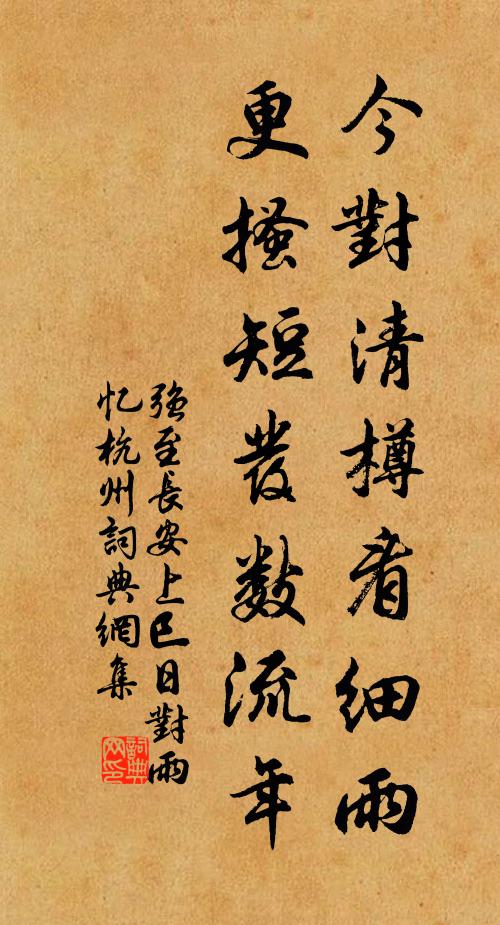 今對清樽看細雨
更搔短發數流年
強至長安上巳日對雨
忆杭州詞典網集
詞典
网印